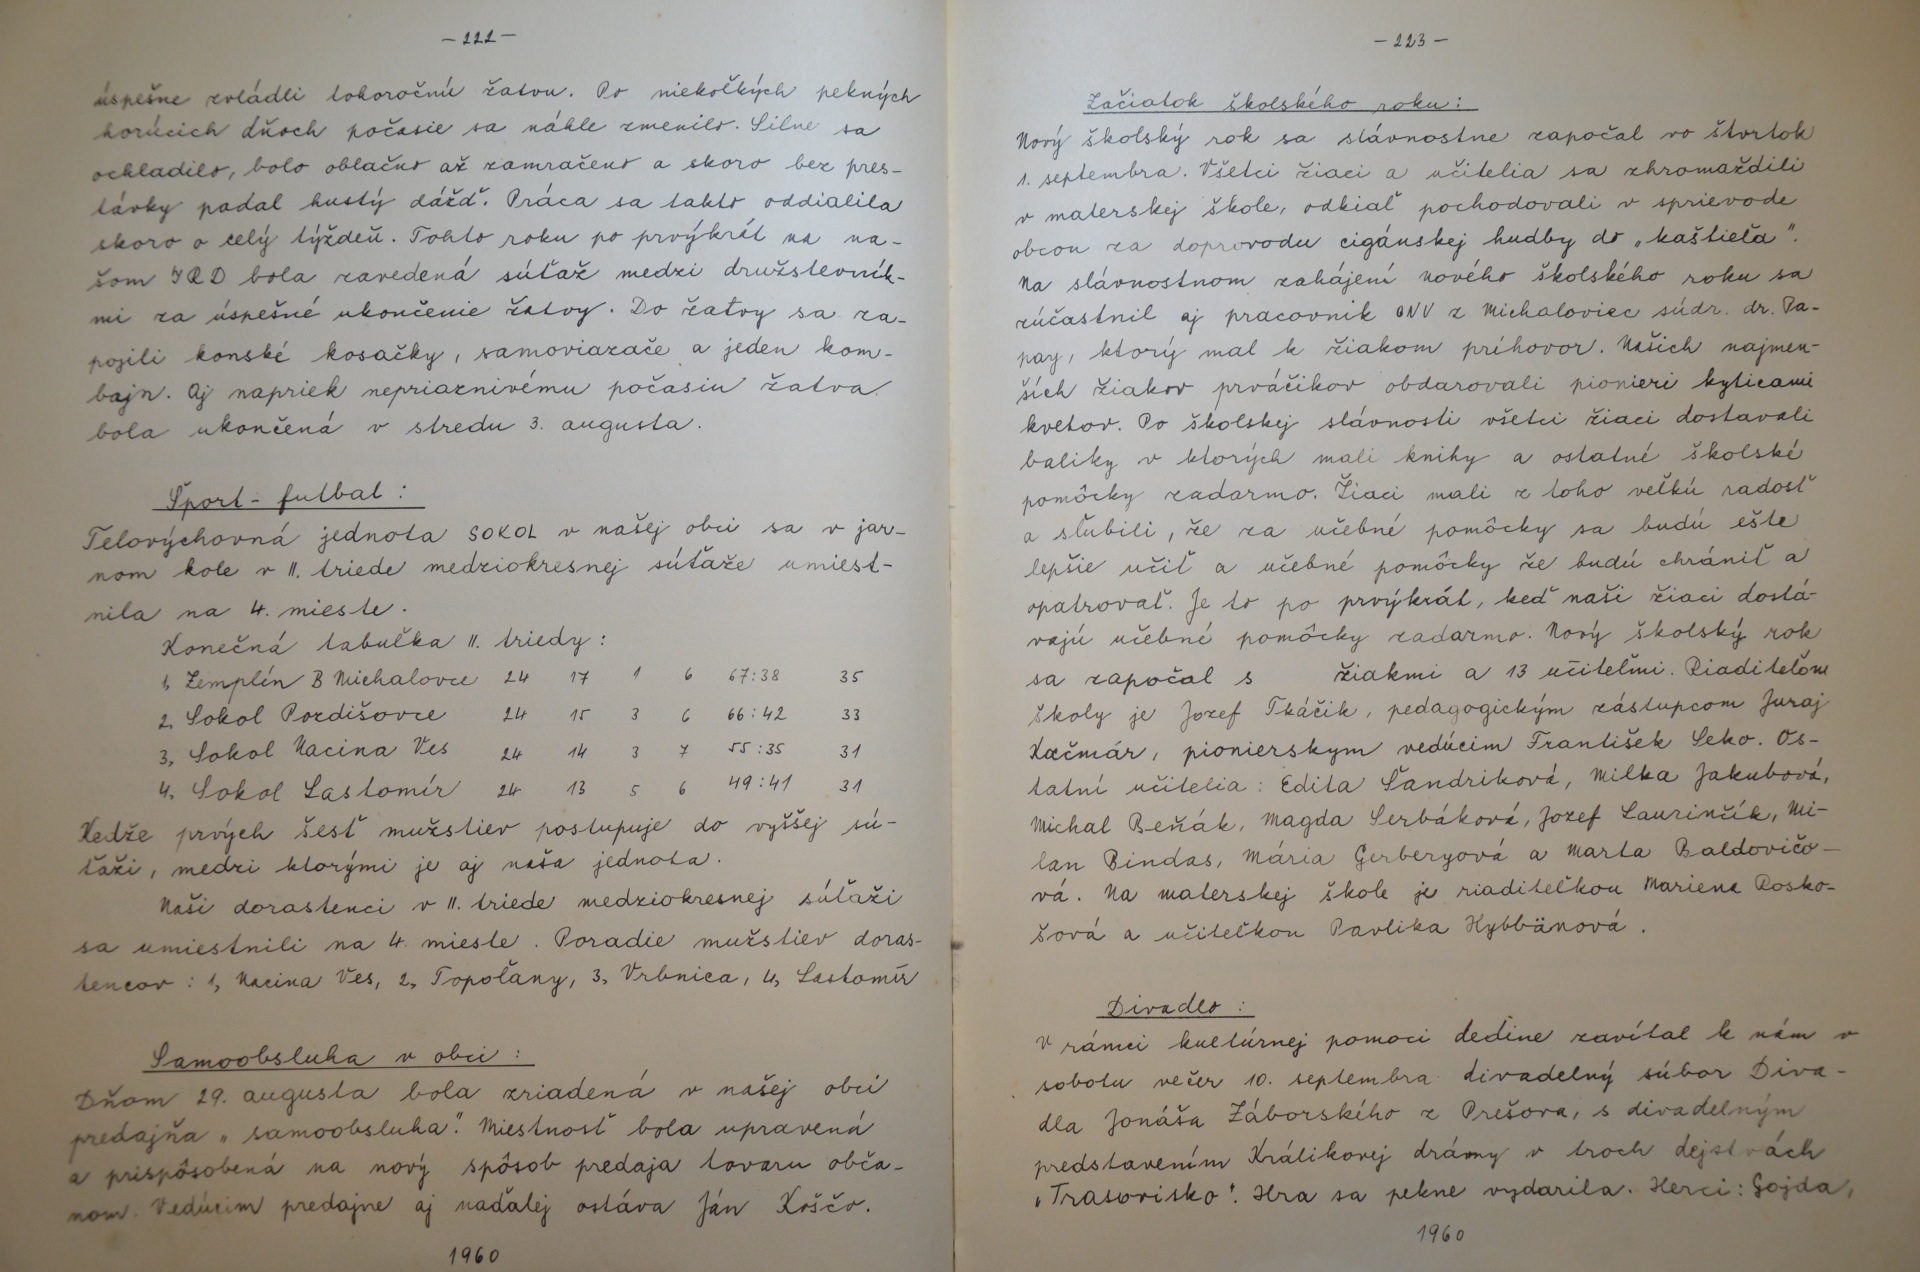 - 222 -
úspešne zvládli tohoročnú žatvu. Po niekoľkých pekných
horúcich dňoch počasie sa náhle zmenilo. Silne sa
ochladilo, bolo oblačno až zamračeno a skoro bez pres-
távky padal hustý dážď. Práca sa takto oddialila
skoro o celý týždeň. Tohto roku po prvýkrát na na-
šom JRD bola zavedená súťaž medzi družstevník-
mi za úspešné ukončenie žatvy. Do žatvy sa za-
pojili konské kosačky, samoviazače a jeden kom-
bajn. Aj napriek nepriaznivému počasiu žatva
bola ukončená v stredu 3. augusta.
Šport - futbal :
Telovýchovná jednota SOKOL v našej obci sa v jar-
nom kole v II. triede medziokresnej súťaže umiest-
nila na 4. mieste.
Konečná tabuľka II. triedy :
1, Zemplín B Michalovce 24 17 1 6 67:38 35
2, Sokol Pozdišovce 24 15 3 6 66:42 33
3, Sokol Nacina Ves 24 14 3 7 55:35 31
4, Sokol Lastomír 24 13 5 6 49:41 31
Kedže prvých šesť mužstiev postupuje do vyššej sú-
ťaži, medzi ktorými je aj naša jednota.
Naši dorastenci v II. triede medziokresnej súťaži
sa umiestnili na 4. mieste. Poradie mužstiev doras-
tencov : 1, Nacina Ves, 2, Topoľany, 3, Vrbnica, 4, Lastomír
Samoobsluha v obci :
Dňom 29. augusta bola zriadená v našej obci
predajňa „samoobsluha". Miestnosť bola upravená
a prispôsobená na nový spôsob predaja tovaru obča-
nom. Vedúcim predajne aj naďalej ostáva Ján Koščo.
1960
- 223 -
Začiatok školského roku :
Nový školský rok sa slávnostne započal vo štvrtok
1. septembra. Všetci žiaci a učitelia sa zhromaždili
v materskej škole, odkiaľ pochodovali v sprievode
obcou za doprovodu cigánskej hudby do „kaštieľa".
Na slávnostnom zahájení nového školského roku sa
zúčastnil aj pracovník ONV z Michaloviec súdr. dr. Pa-
pay, ktorý mal k žiakom príhovor. Našich najmen-
ších žiakov prváčikov obdarovali pionieri kyticami
kvetov. Po školskej slávnosti všetci žiaci dostavali
baliky v ktorých mali knihy a ostatné školské
pomôcky zadarmo. Žiaci mali z toho veľkú radosť
a sľubili, že za učebné pomôcky sa budú ešte
lepšie učiť a učebné pomôcky že budú chrániť a
opatrovať. Je to po prvýkrát, keď naši žiaci dostá-
vajú učebné pomôcky zadarmo. Nový školský rok
sa započal s žiakmi a 13 učiteľmi. Riaditeľom
školy je Jozef Tkáčik, pedagogickým zástupcom Juraj
Kačmár, pionierskym vedúcim František Seko. Os-
tatní učitelia : Edita Šandriková, Milka Jakubová,
Michal Beňák, Magda Serbáková, Jozef Laurinčík, Mi-
lan Bindas, Mária Gerberyová a Marta Baldovičo-
vá. Na materskej škole je riaditeľkou Mariena Rosko-
šová a učiteľkou Pavlika Hybbänová.
Divadlo :
V rámci kultúrnej pomoci dedine zavítal k nám v
sobotu večer 10. septembra divadelný súbor Diva-
dla Jonáša Záborského z Prešova, s divadelným
predstavením Králikovej drámy v troch dejstvách
„Trasovisko". Hra sa pekne vydarila. Herci : Gojda,
1960